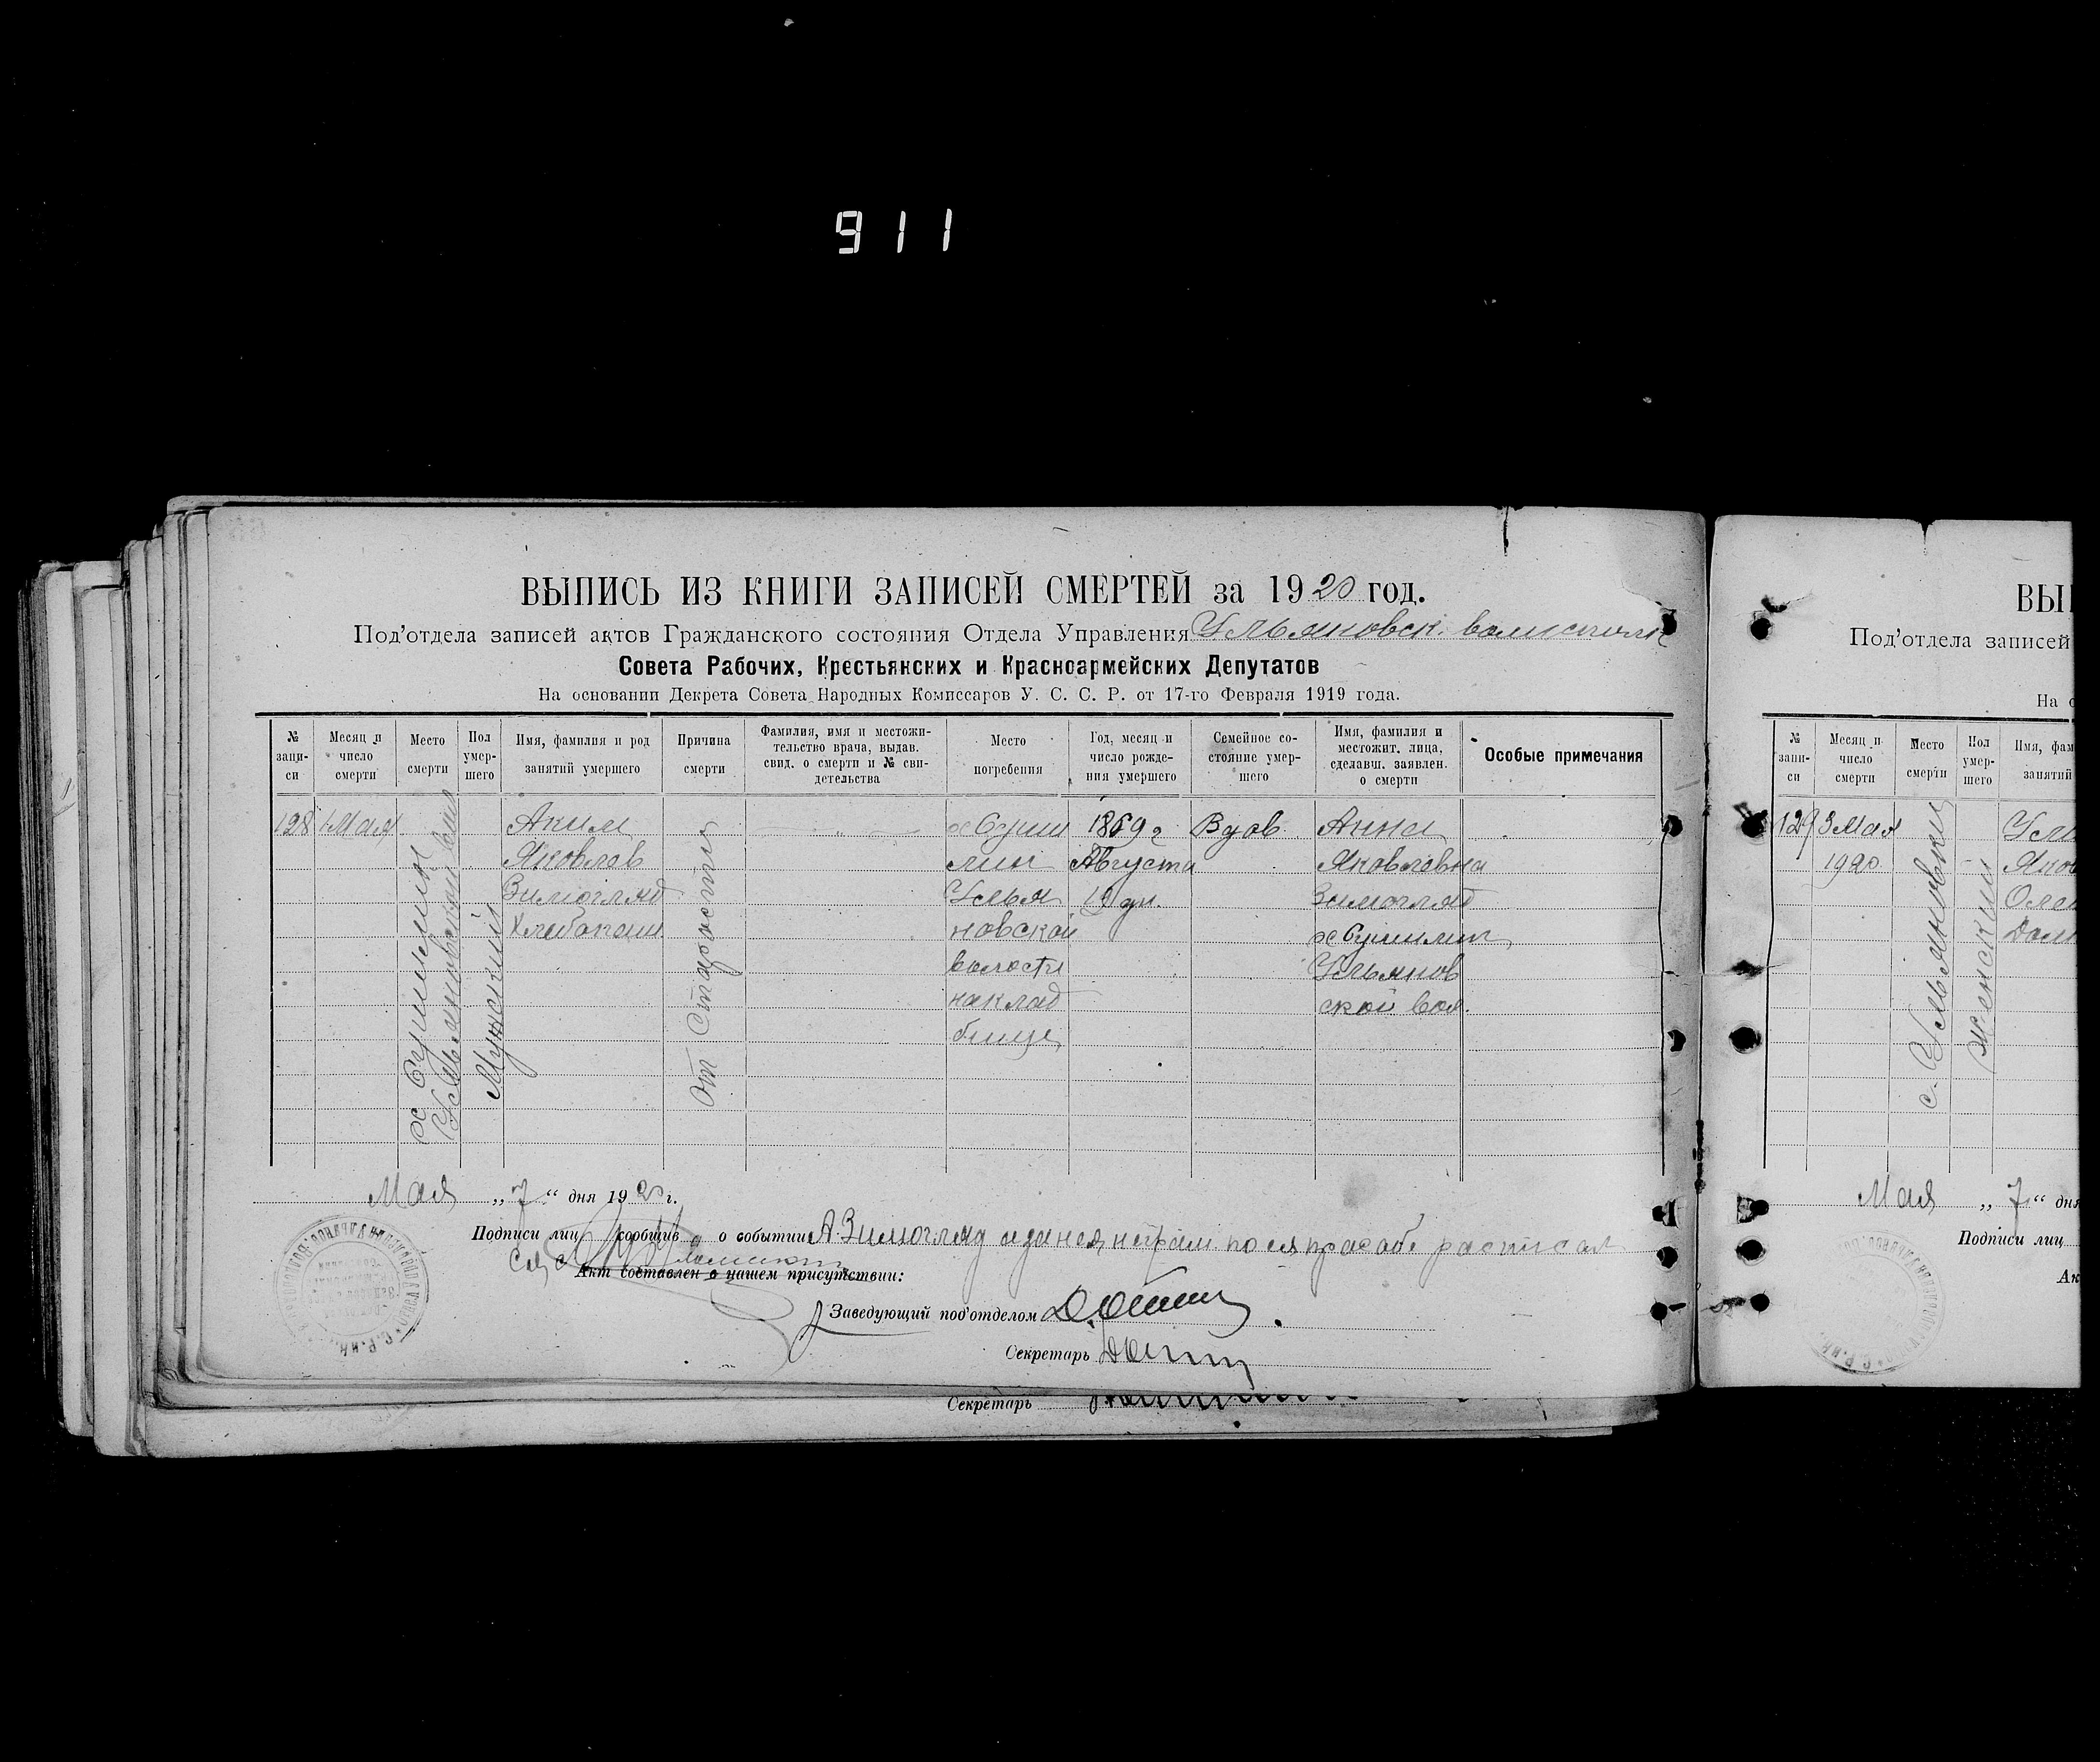 911
ВЫПИСЬ ИЗ КНИГИ ЗАПИСЕЙ СМЕРТЕЙ за 1920 год.
Под'отдела записей актов Гражданского состояния Отдела Управления Ульяновск. волисполк
Совета Рабочих, Крестьянских и Красноармейских Депутатов
На основании Декрета Совета Народных Комиссаров У. С. С. Р. от 17-го Февраля 1919 года.
№ запи-си
Месяц и число смерти
Место смерти
Пол умер-шего
Имя, фамилия и род занятий умершего
Причина смерти
Фамилия, имя и местожи-тельство врача, выдав. свид. о смерти и № сви-детельства
Место погребения
Год, месяц и число рожде-ния умершего
Семейное со-стояние умер-шего
Имя, фамилия и местожит. лица, сделавш. заявлен. о смерти
Особые примечания
128
1 Мая
Мужский
Аким
Яковлев
Зимогляд
Хлебопаш
от старости
Улья
новской
волости
на клад
бище
1869 г
Августа
Вдов
Анна
Яковлевна
Зимогляд
Ульянов
ской вол.
Мая „7“ дня 1920 г.
Подписи лиц сообщив о событии А. Зимогляд а за нея неграм. по ея прозбе росписал
Акт составлен в нашем присутствии:
Заведующий под'отделом
Секретарь
Секретарь
ВЫП
Под'отдела записей
На о
№ запи-си
Месяц и число смерти
Место смерти
Пол умер-шего
Имя, фам
занятий
129
3 Мая
1920
с. Ульяновки
женский
Яков
Мая „7“ дня
Подписи лиц
Ак